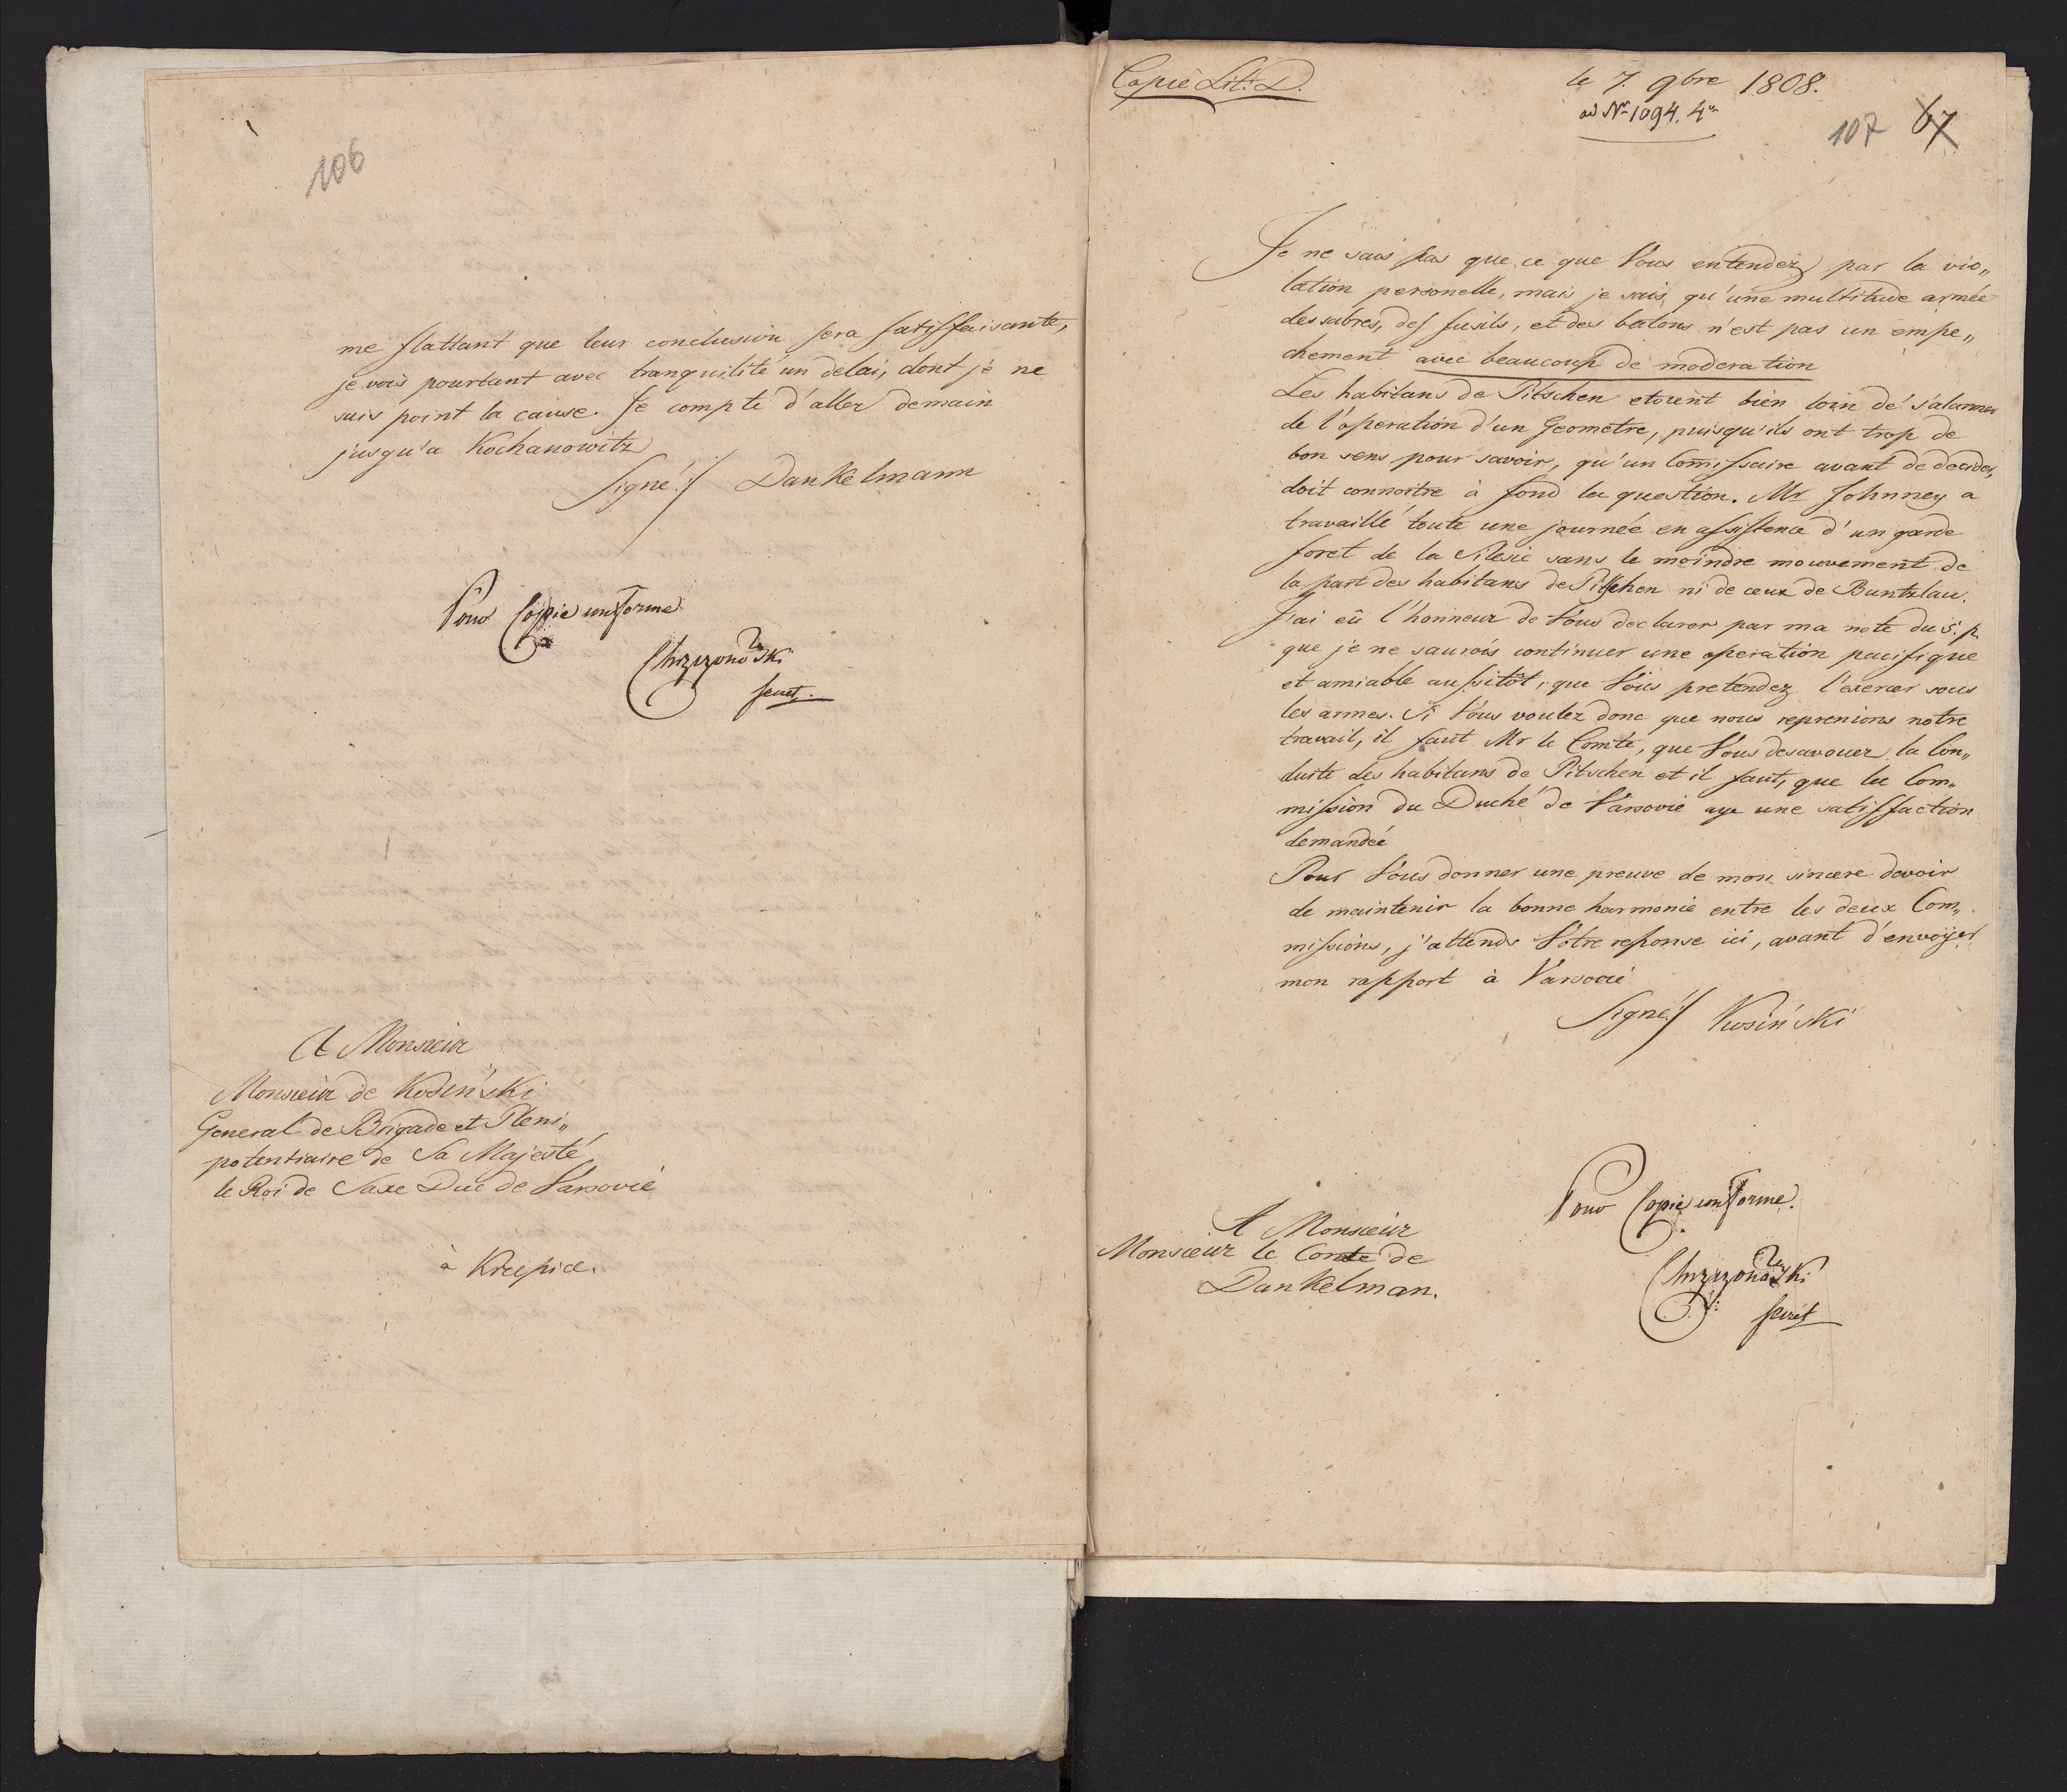 106
me flattant que leur conclusion sera satisfaisante,
je vois pourtant avec tranquilité un delai, dont je ne
suis point la cause. Je compte d'aller demain
jusqu'a Kochanowitz
Signé:/ Dankelmann
Pour Copie conforme
Chrzzonowski
secret.
A Monsieur
Monsieur de Kosiński
General de Brigade et Pleni„
potentiaire de Sa Majesté
le Roi de Saxe Duc de Varsovie
à Krzepice.
Copie Lit: D.
le 7. 9bre 1808.
ad Nr 1094. 4
107 67
Je ne sais pas que ce que Vous entendez par la vio„
lation personelle, mais je sais, qu'une multitude armée
des sabres, des fusils, et des batons n'est pas un empe„
chement avec beaucoup de moderation
Les habitans de Pitschen etoient bien loin de s'alarmer
de l'operation d'un Geometre, puisqu'ils ont trop de
bon sens pour savoir, qu'un Comissaire avant de decider,
doit connoitre à fond la question. Mr Johnney a
travaillé toute une journée en assistence d'un garde
foret de la Silesie sans le moindre mouvement de
la part des habitans de Pitschen ni de ceux de Buntzlau.
J'ai eû l'honneur de Vous declarer par ma note du 5. p.
que je ne saurois continuer une operation pacifique
et amiable aussitôt, que Vous pretendez l'exercer sous
les armes. Si Vous voulez donc que nous reprenions notre
travail, il faut Mr le Comte, que Vous desavouez la Con„
duite des habitans de Pitschen et il faut, que la Com„
mission du Duché de Varsovie aye une satisfaction
demandée
Pour Vous donner une preuve de mon sincere devoir
de maintenir la bonne harmonie entre les deux Com„
missions, j'attends Votre reponse ici, avant d'envoyer
mon rapport à Varsovie
Signé:/ Kosiński
Pour Copie conforme.
Chrzzonowski
secret
A Monsieur
Monsieur le Comte de
Dankelman.